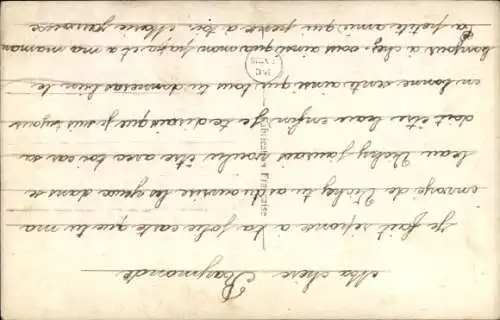 Ma chère Raymonde
Je fait réponse a ta jolie carte que tu ma
envoyé de Vichy tu as du ouvrire les yeux dans ce
beau Vichy j'aurais voulu être avec toi car sa
doit être beau enfin je te dirais que je suis toujours
en bonne santé ainsi que tous tu donneras bien le
bonjour a chez vous ainsi qua mon papa et a ma maman
ta petite amie qui pense a toi Marie
Fabrication Française